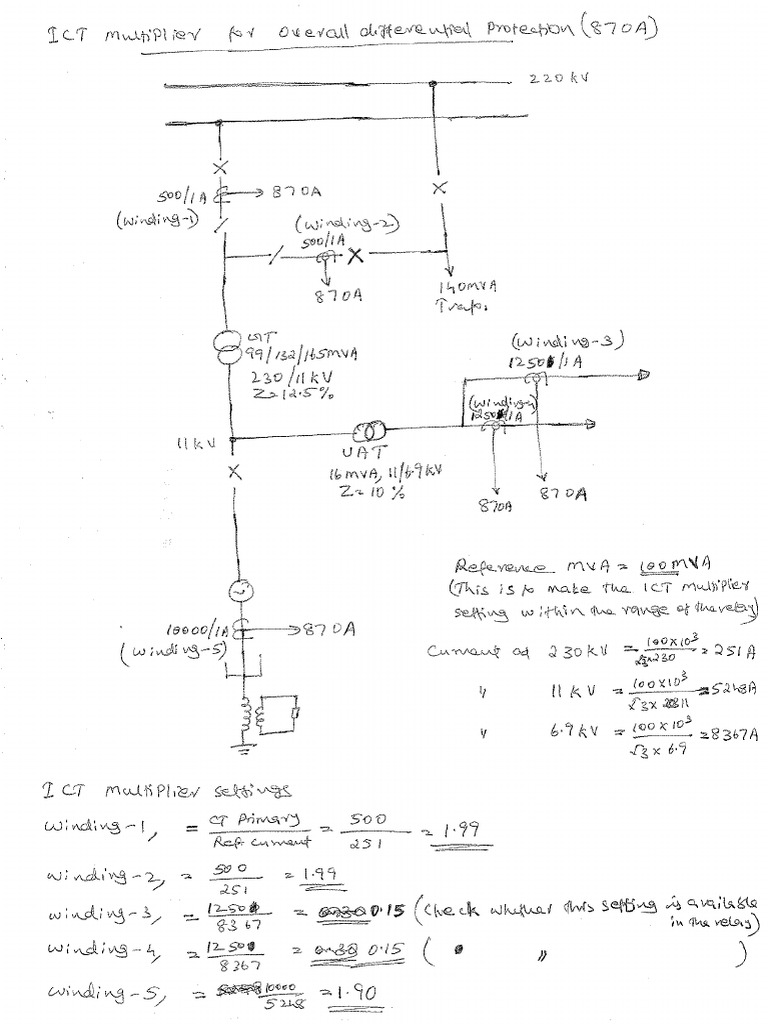 ICT multiplier for Overall differential Protection (870A)
220 kV
500/1A → 870A
(Winding-1)
(Winding-2)
500/1A
870A
140MVA
Trafo.
GT
99/132/165MVA
230/11kV
Z=12.5%
(Winding-3)
1250/1A
(Winding-4)
1250/1A
11kV
UAT
16MVA, 11/6.9kV
Z=10%
870A
870A
10000/1A → 870A
(Winding-5)
Reference MVA = 100MVA
(This is to make the ICT multiplier
setting within the range of the relay)
Current at 230kV = 100×10³/√3×230 = 251A
" 11kV = 100×10³/√3×11 = 5248A
" 6.9kV = 100×10³/√3×6.9 = 8367A
ICT multiplier settings
Winding-1, = CT Primary/Ref. current = 500/251 = 1.99
Winding-2, = 500/251 = 1.99
Winding-3, = 1250/8367 = 0.15 (Check whether this setting is available
in the relay)
Winding-4, = 1250/8367 = 0.15 ( " " )
Winding-5, = 10000/5248 = 1.90